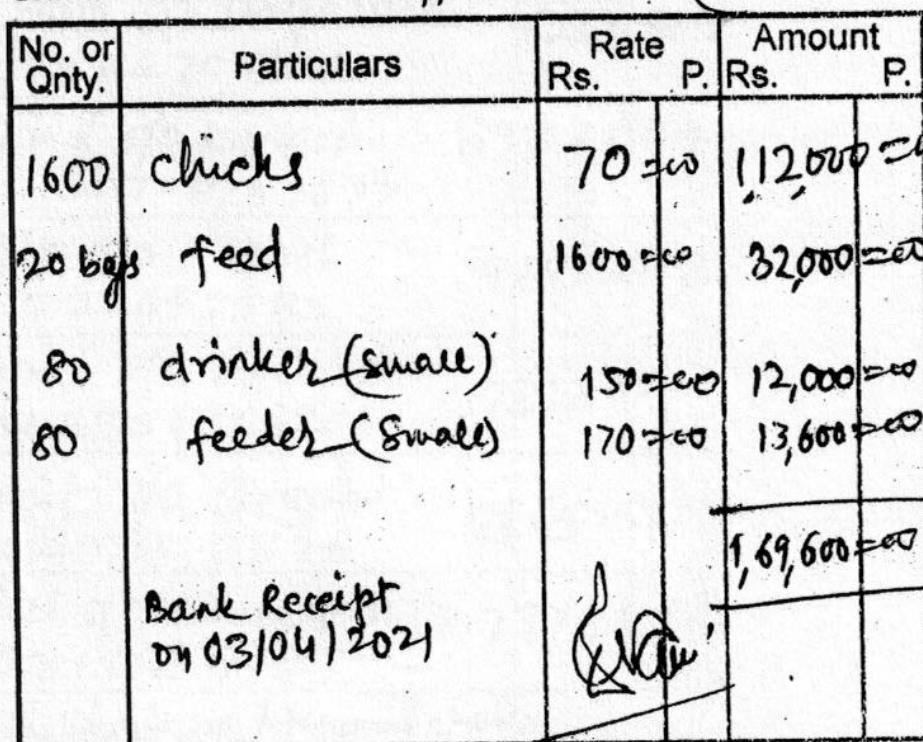 No. or Qnty. Particulars Rate Rs. P. Amount Rs. P.
1600 Chicks 70=00 1,12,000=00
20 bags feed 1600=00 32,000=00
80 drinker (small) 150=00 12,000=00
80 feeder (small) 170=00 13,600=00
1,69,600=00
Bank Receipt
on 03/04/2021